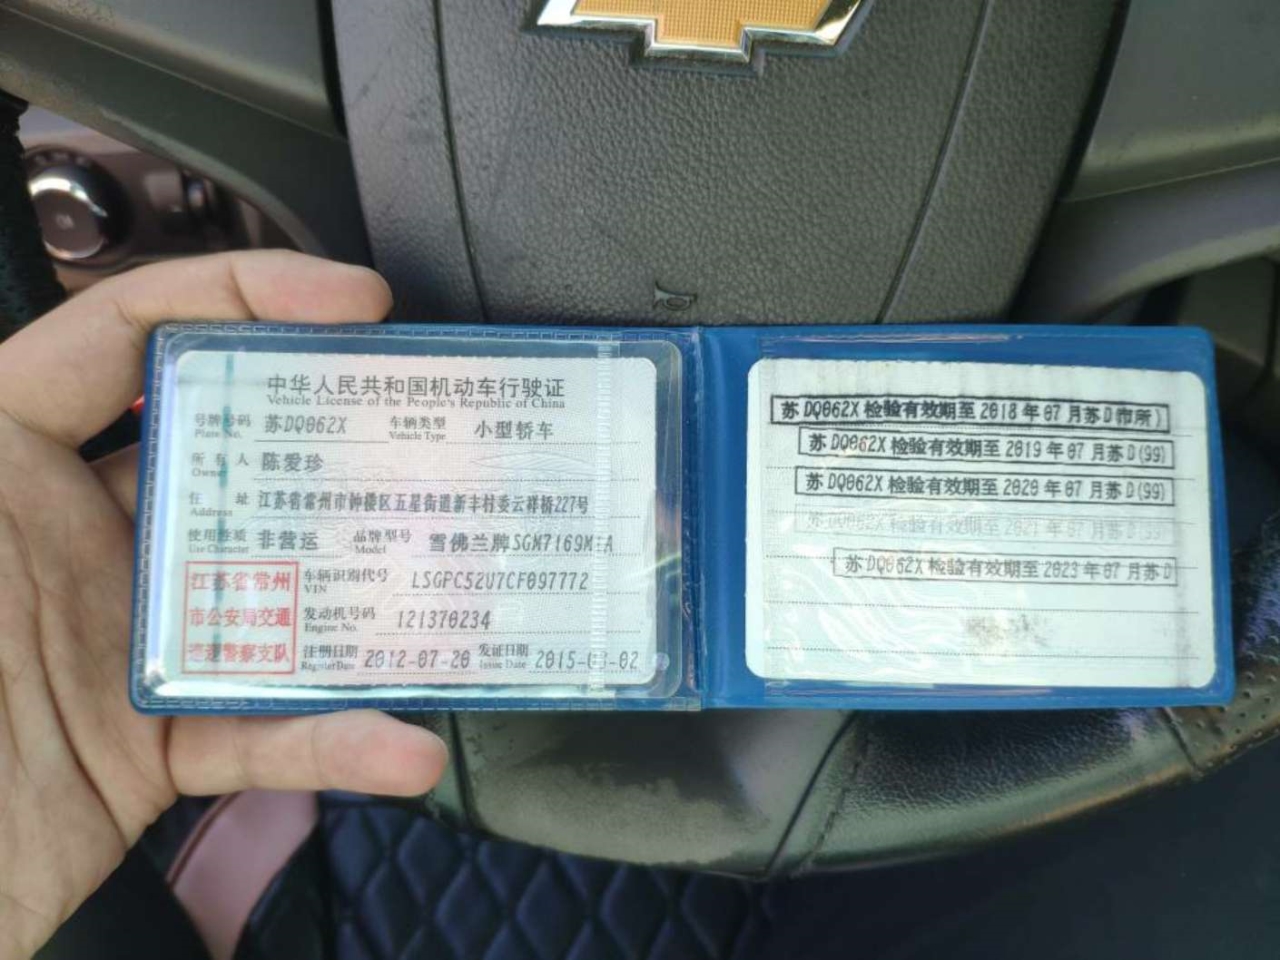 中华人民共和国机动车行驶证
Vehicle License of the People's Republic of China
号牌号码 苏DQ062X 车辆类型 小型轿车
Plate No. Vehicle Type
所有人 陈爱珍
Owner
住址 江苏省常州市钟楼区五星街道新丰村委云祥桥227号
Address
使用性质 非营运 品牌型号 雪佛兰牌
Use Character Model
江苏省常州
市公安局交通
巡逻警察支队
车辆识别代号 LSGPC52U7CF097772
VIN
发动机号码 121370234
Engine No.
注册日期 2012-07-20 发证日期
Register Date Issue Date
苏DQ062X 检验有效期至 2018 年 07 月苏D
苏DQ062X 检验有效期至 2019 年 07 月苏D(99)
苏DQ062X 检验有效期至 2020 年 07 月苏D(99)
苏DQ062X 检验有效期至 2021 年 07 月苏D(99)
苏DQ062X 检验有效期至 2023 年 07 月苏D